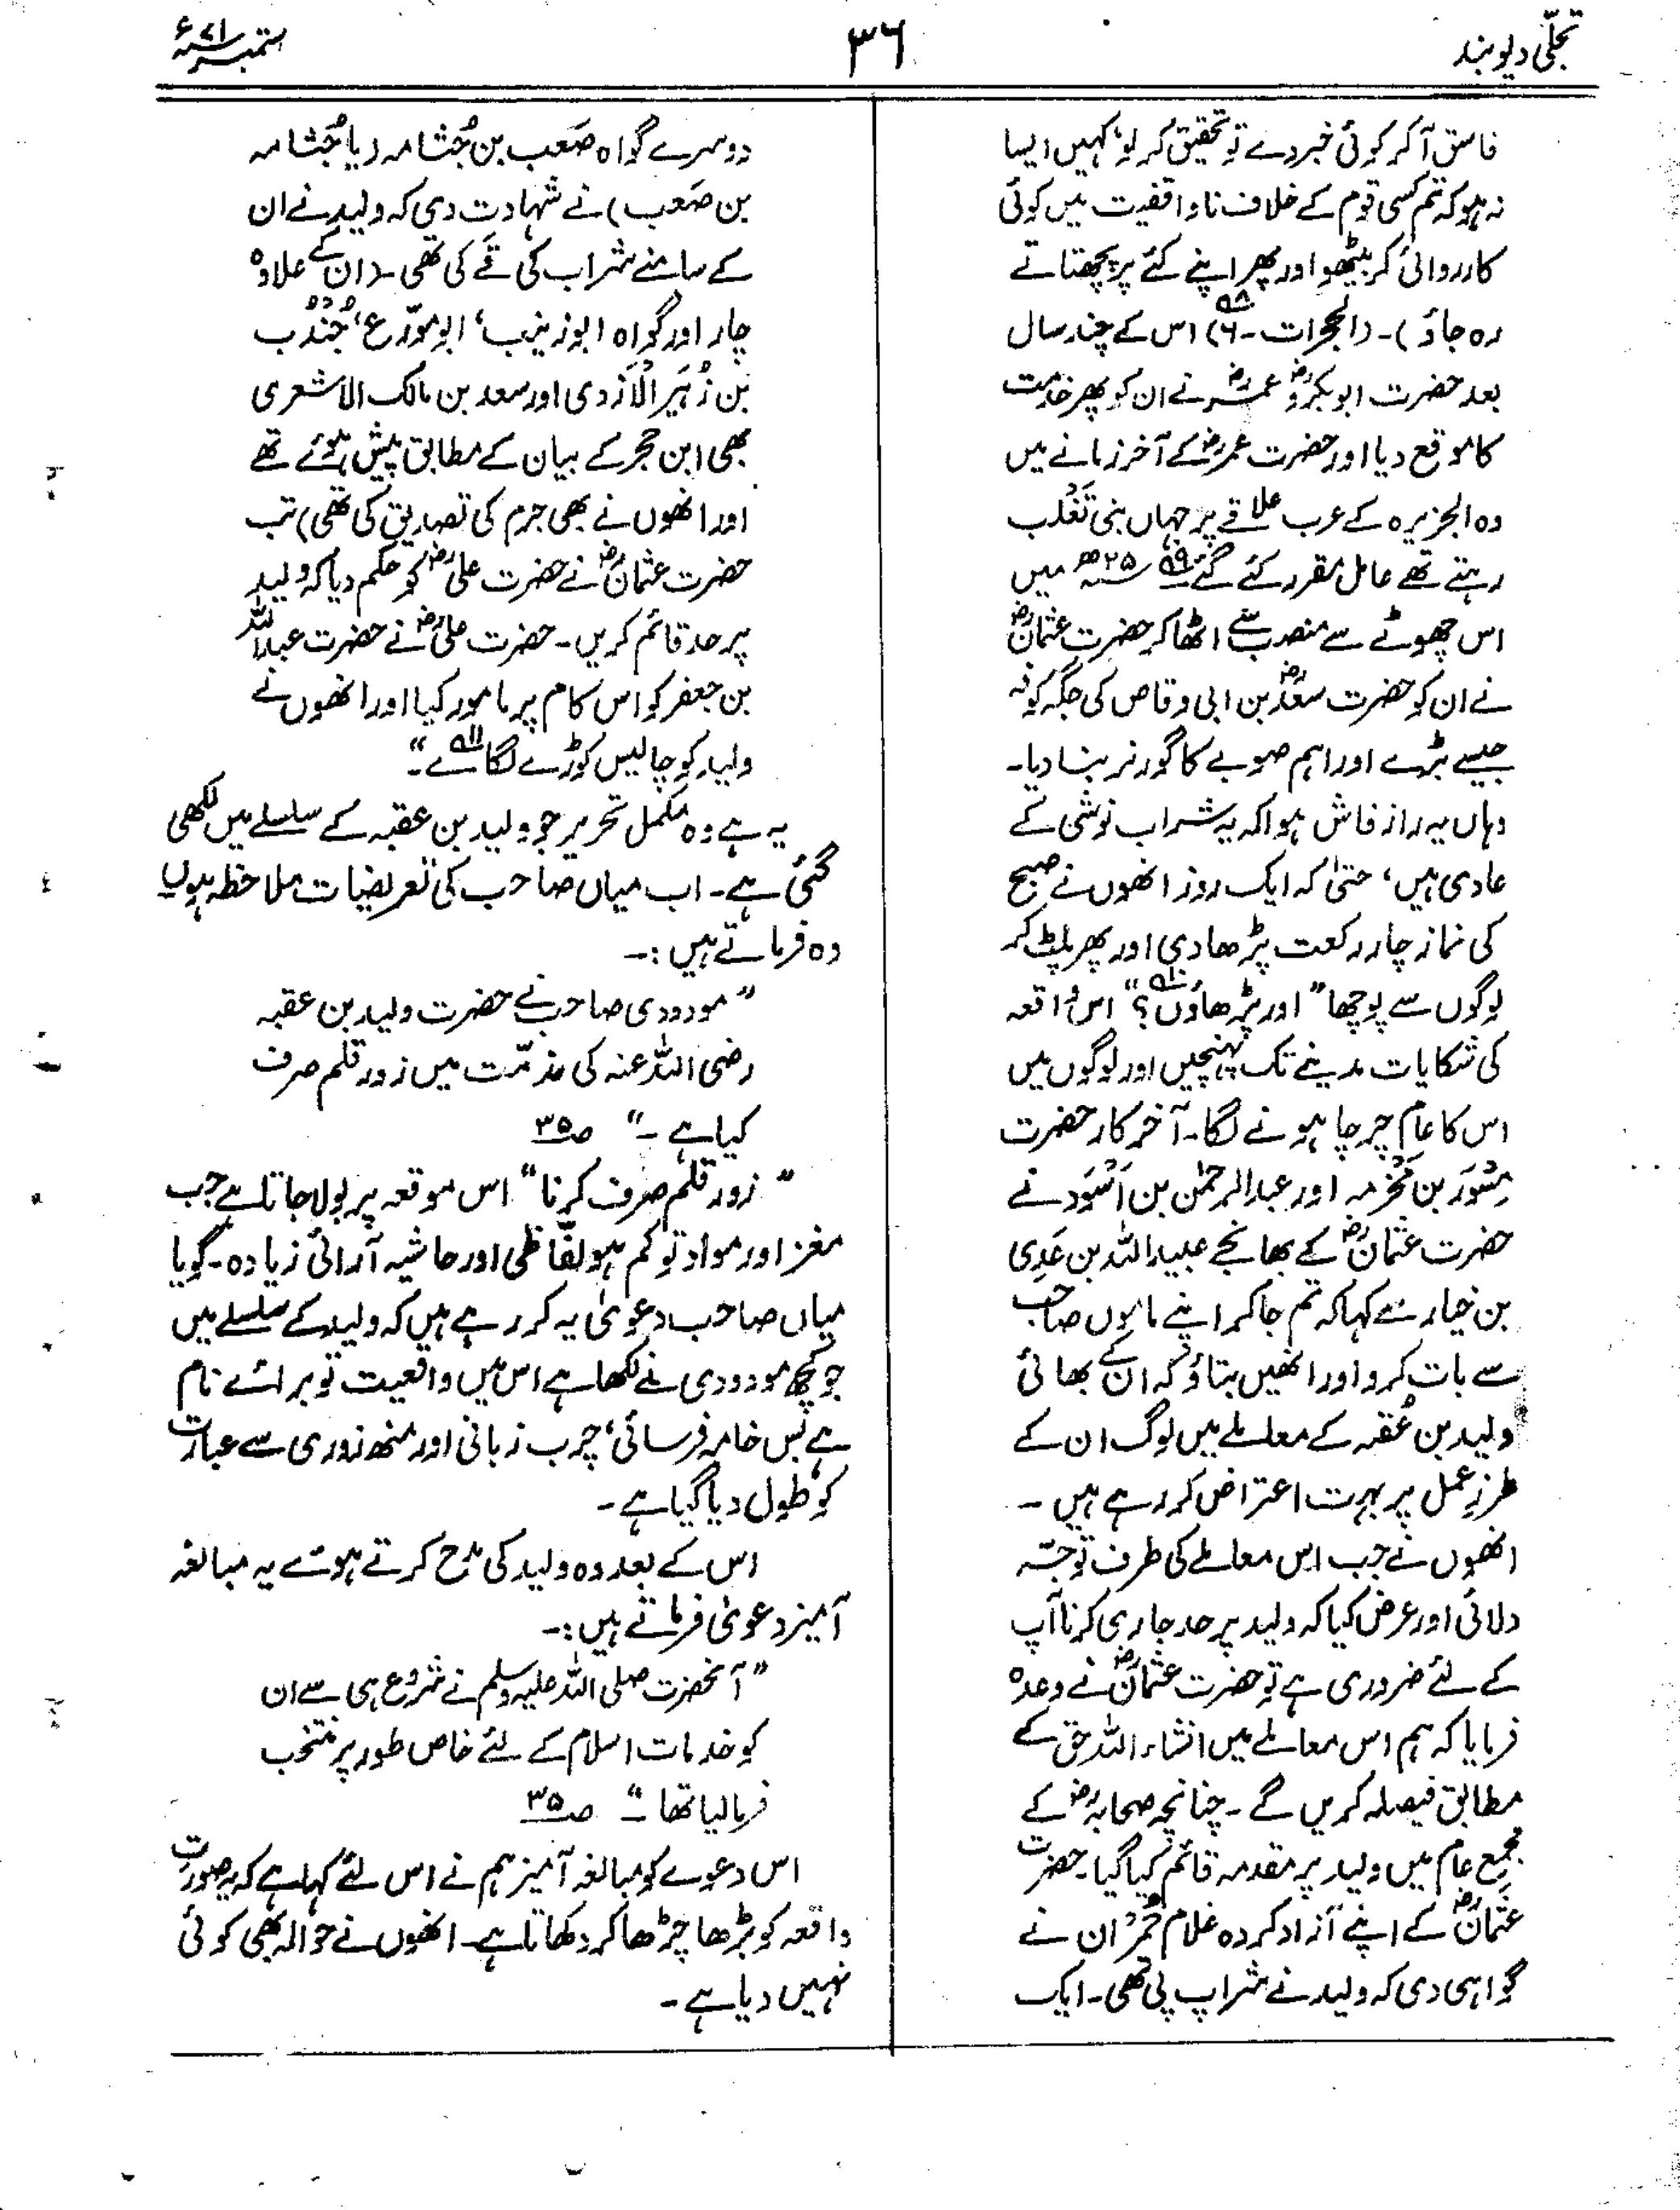 تجلّی دیوبند
۳۶
ستمبر ۷۱ء
فاسق آکر کوئی خبر دے تو تحقیق کر لو، کہیں ایسا
نہ ہو کہ تم کسی قوم کے خلاف ناواقفیت میں کوئی
کارروائی کر بیٹھو اور پھر اپنے کئے پر پچھتاتے
رہ جاؤ)۔ (الحجرات۔ ۶)؁۸ اس کے چند سال
بعد حضرت ابوبکرؓ و عمرؓ نے ان کو پھر خدمت
کا موقع دیا اور حضرت عمرؓ کے آخر زمانے میں
وہ الجزیرہ کے عرب علاقے پر جہاں بنی تَغْلب
رہتے تھے عامل مقرر کئے گئے؁۹ ۲۵ھ میں
اس چھوٹے سے منصب سے اٹھا کر حضرت عثمانؓ
نے ان کو حضرت سعدؓ بن ابی وقاص کی جگہ کوفہ
جیسے بڑے اور اہم صوبے کا گورنر بنا دیا۔
وہاں یہ راز فاش ہوا کہ یہ شراب نوشی کے
عادی ہیں، حتیٰ کہ ایک روز انھوں نے صبح
کی نماز چار رکعت پڑھا دی اور پھر پلٹ کر
لوگوں سے پوچھا "اور پڑھاؤں؟"؁۱۰ اس واقعہ
کی شکایات مدینے تک پہنچیں اور لوگوں میں
اس کا عام چرچا ہونے لگا۔ آخر کار حضرت
مِسْوَر بن مَخْرمہ اور عبدالرحمٰن بن اَسْوَد نے
حضرت عثمانؓ کے بھانجے عبیداللہ بن عَدِی
بن خیار سے کہا کہ تم جا کر اپنے ماموں صاحب
سے بات کرو اور انھیں بتاؤ کہ ان کے بھائی
ولید بن عُقبہ کے معاملے میں لوگ ان کے
طرزِ عمل پر بہت اعتراض کر رہے ہیں۔
انھوں نے جب اس معاملے کی طرف توجّہ
دلائی اور عرض کیا کہ ولید پر حد جاری کرنا آپ
کے لئے ضروری ہے تو حضرت عثمانؓ نے وعدہ
فرمایا کہ ہم اس معاملے میں انشاء اللہ حق کے
مطابق فیصلہ کریں گے۔ چنانچہ صحابہؓ کے
مجمع عام میں ولید پر مقدمہ قائم کیا گیا۔ حضرت
عثمانؓ کے اپنے آزاد کردہ غلام حُمْران نے
گواہی دی کہ ولید نے شراب پی تھی۔ ایک
دوسرے گواہ صَعب بن جُثامہ (یا جُثامہ
بن صَعب) نے شہادت دی کہ ولید نے ان
کے سامنے شراب کی قَے کی تھی۔ (ان کے علاوہ
چار اور گواہ ابو زینب، ابو موَرّع، جُنْدُب
بن زُہَیر الْاَزدی اور سعد بن مالک الاشعری
بھی ابن حجر کے بیان کے مطابق پیش ہوئے تھے
اور انھوں نے بھی جرم کی تصدیق کی تھی) تب
حضرت عثمانؓ نے حضرت علیؓ کو حکم دیا کہ ولید
پر حد قائم کریں۔ حضرت علیؓ نے حضرت عبداللہ
بن جعفر کو اس کام پر مامور کیا اور انھوں نے
ولید کو چالیس کوڑے لگائے۔"؁۱۱
یہ ہے وہ مکمل تحریر جو ولید بن عقبہ کے سلسلے میں لکھی
گئی ہے۔ اب میاں صاحب کی تعریضیات ملاحظہ ہوں
وہ فرماتے ہیں:۔
"مودودی صاحب نے حضرت ولید بن عقبہ
رضی اللہ عنہ کی مذمّت میں زور قلم صرف
کیا ہے۔" ص۳۵
"زور قلم صرف کرنا" اس موقعہ پر بولا جاتا ہے جب
مغز اور مواد تو کم ہو لفّاظی اور حاشیہ آرائی زیادہ۔ گویا
میاں صاحب دعویٰ یہ کر رہے ہیں کہ ولید کے سلسلے میں
جو کچھ مودودی نے لکھا ہے اس میں واقعیت تو برائے نام
ہے بس خامہ فرسائی، چرب زبانی اور منھ زوری سے عبارت
کو طول دیا گیا ہے۔
اس کے بعد وہ ولید کی مدح کرتے ہوئے یہ مبالغہ
آمیز دعویٰ فرماتے ہیں:۔
"آنحضرت صلی اللہ علیہ وسلم نے شروع ہی سے ان
کو خدمات اسلام کے لئے خاص طور پر منتخب
فرما لیا تھا۔" ص۳۵
اس دعوے کو مبالغہ آمیز ہم نے اس لئے کہا ہے کہ یہ صورت
واقعہ کو بڑھا چڑھا کر دکھاتا ہے۔ انھوں نے حوالہ بھی کوئی
نہیں دیا ہے۔